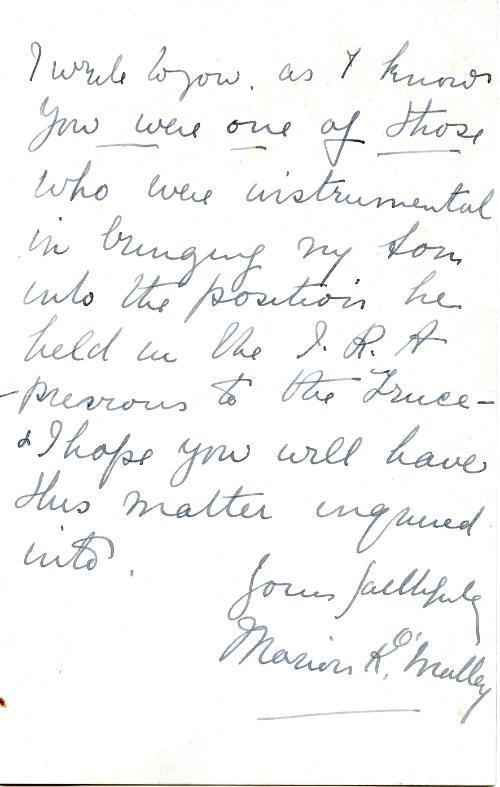 I write to you, as I know
you were one of those
who were instrumental
in bringing my son
into the position he
held in the I. R. A
- previous to the Truce -
& I hope you will have
this matter inquired
into.
Yours faithfully
Marion K. O'Malley